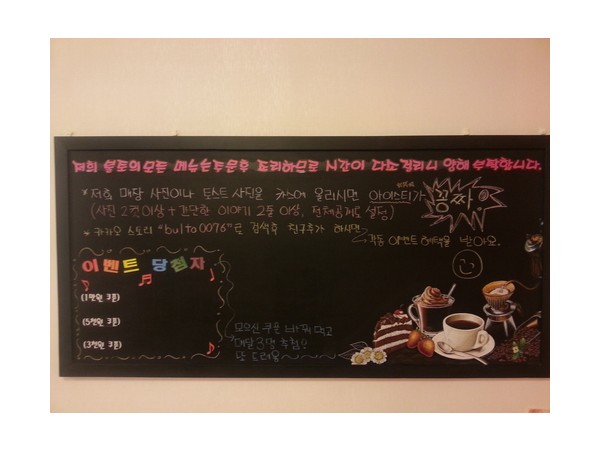 저희 불토의 모든 메뉴는 주문후 조리하므로 시간이 다소 걸리니 양해 부탁합니다.
* 저희 매장 사진이나 토스트 사진을 카스에 올려시면 아이스티가 공짜!
(사진 2컷이상 + 간단한 이야기 2줄 이상, 전체공개로 설정)
* 카카오 스토리 "bulto0076"로 검색후 친구추가 하시면 각종 이벤트 혜택을 받아요.
이벤트 당첨자
(1만원 쿠폰)
(5천원 쿠폰)
(3천원 쿠폰)
모으신 쿠폰 바꿔 먹고
매달 3명 추첨!!
또 드려용~